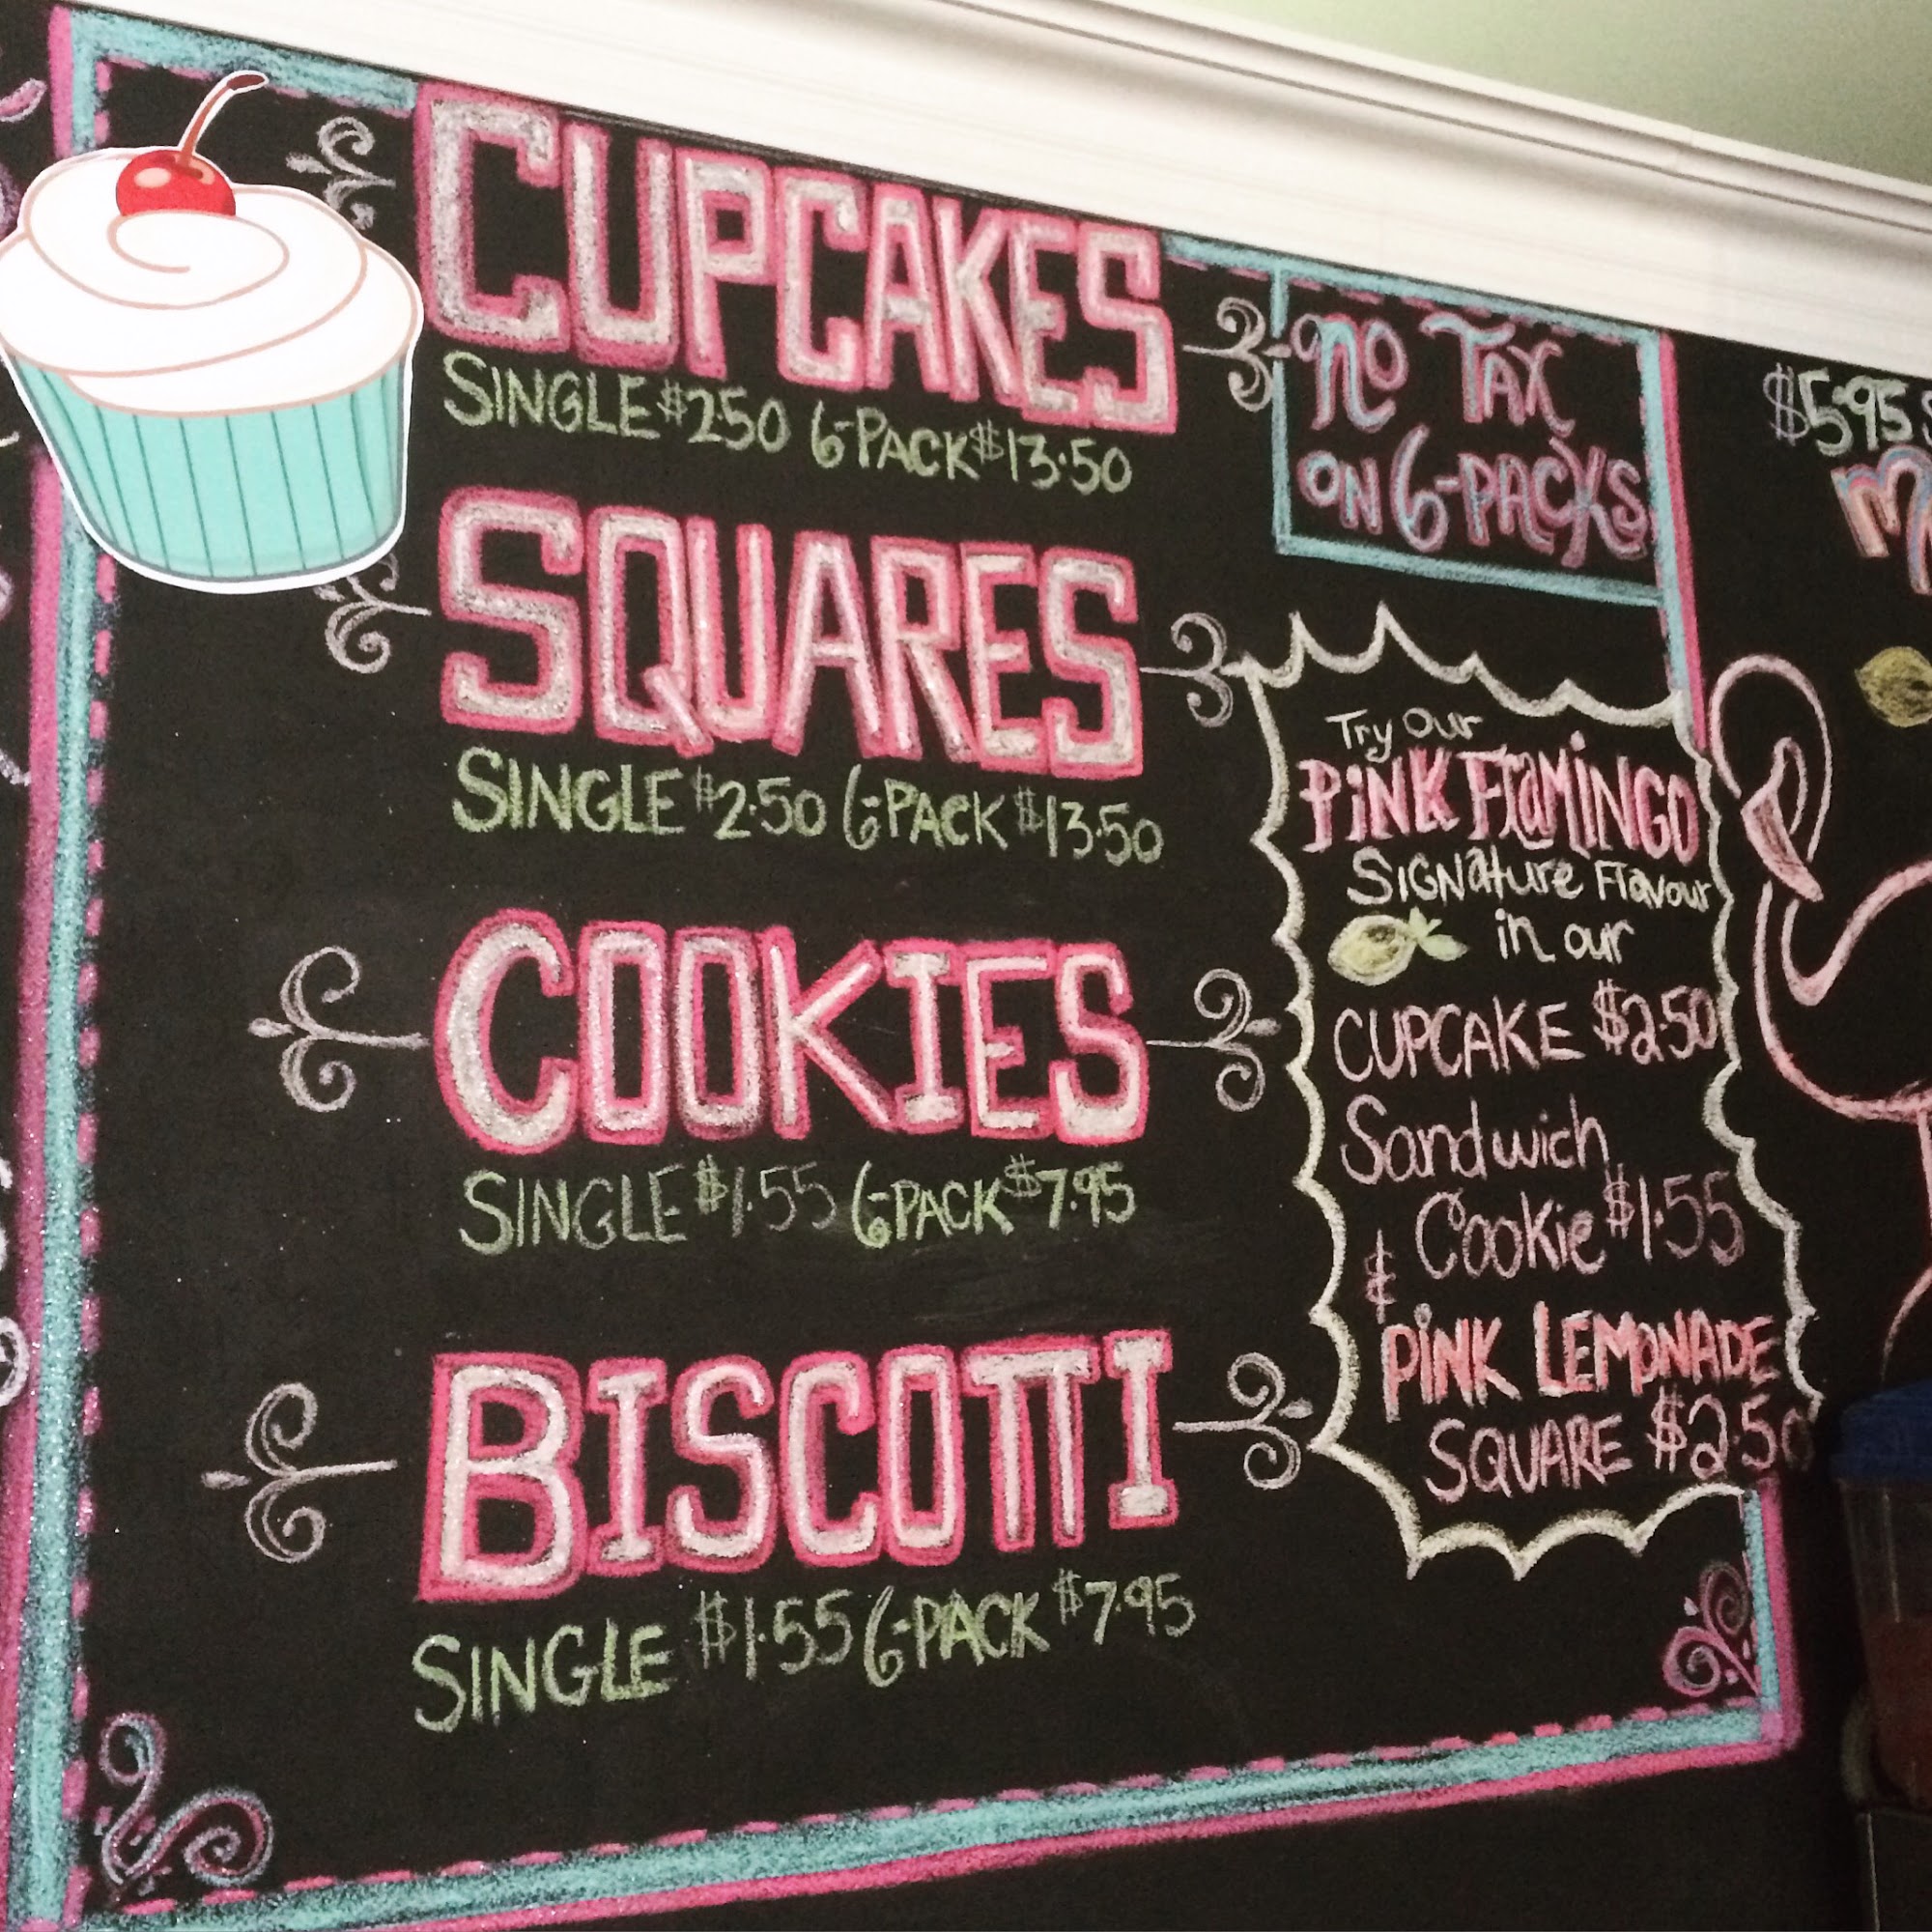 CUPCAKES
SINGLE $2.50 6-PACK $13.50
SQUARES
SINGLE $2.50 6-PACK $13.50
COOKIES
SINGLE $1.55 6-PACK $7.95
BISCOTTI
SINGLE $1.55 6-PACK $7.95
NO TAX
ON 6-PACKS
Try Our
PINK FLaMINGO
SIGNature Flavour
in our
CUPCAKE $2.50
Sandwich
Cookie $1.55
&
PINK LEMONADE
SQUARE $2.50
$5.95